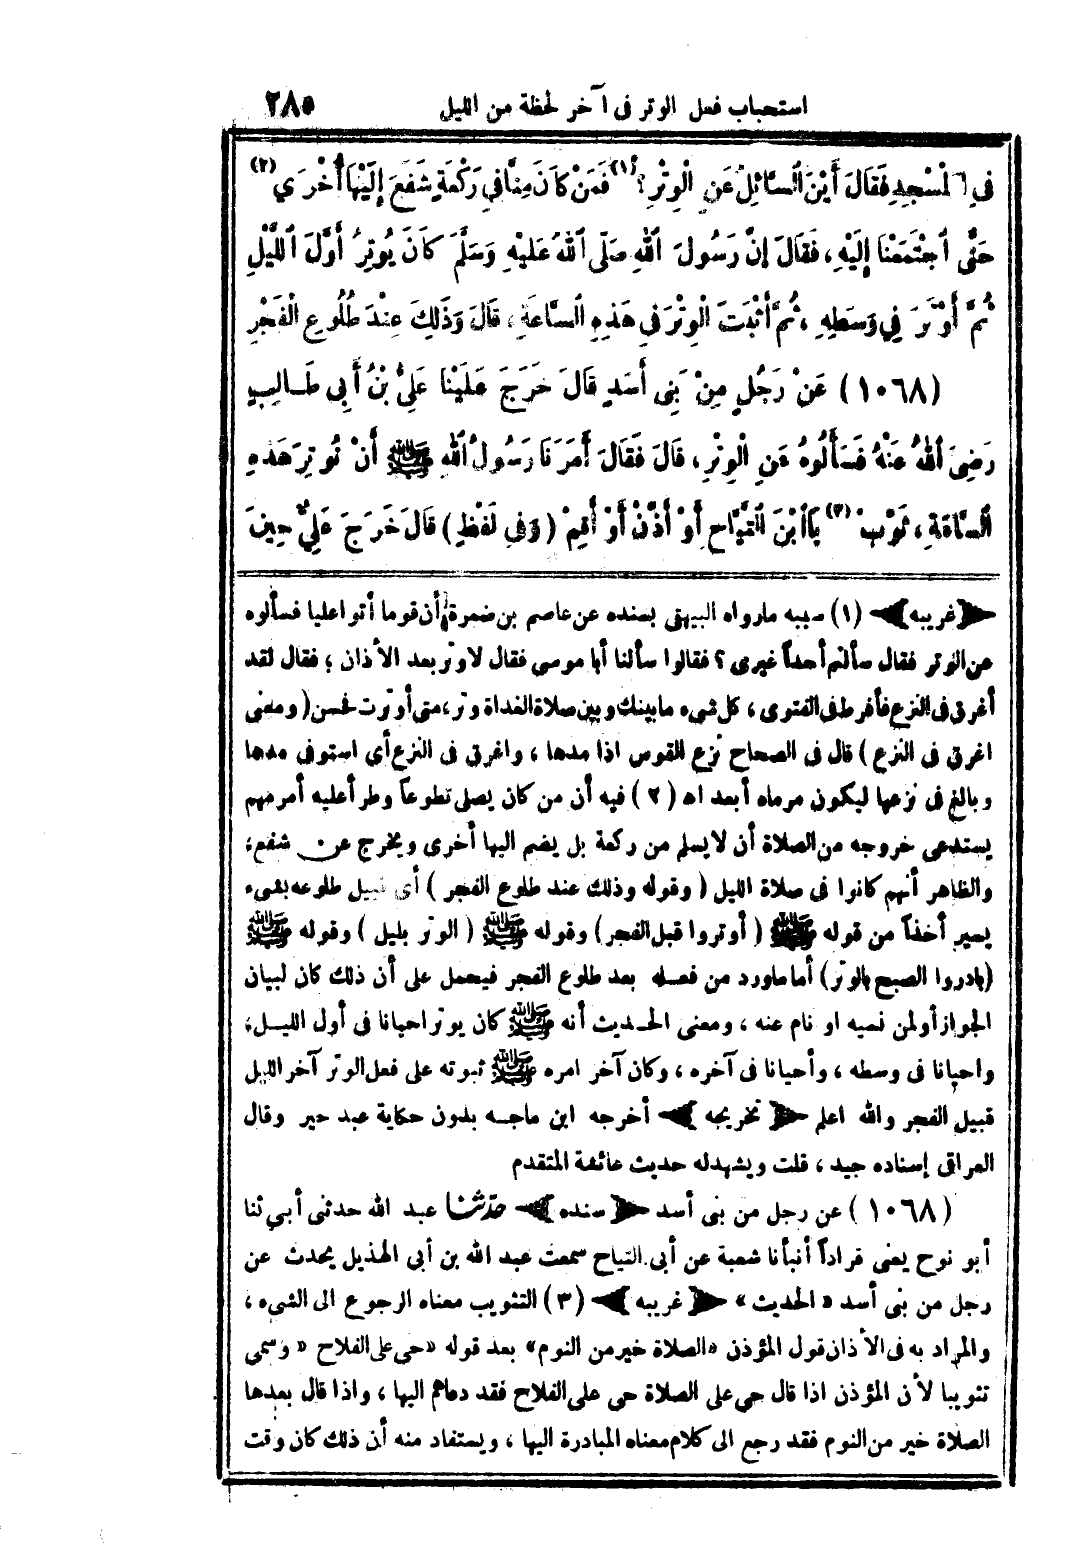 استحباب فعل الوتر فى آخر لحظة من الليل ٢٨٥
فِى الْمَسْجِدِ فَقَالَ أَيْنَ السَّائِلُ عَنِ الْوِتْرِ؟ (١) فَمَنْ كَانَ مِنَّا فِي رَكْعَةٍ شَفَعَ إِلَيْهَا أُخْرَى (٢)
حَتَّى اجْتَمَعْنَا إِلَيْهِ، فَقَالَ إِنَّ رَسُولَ اللهِ صَلَّى اللهُ عَلَيْهِ وَسَلَّمَ كَانَ يُوتِرُ أَوَّلَ اللَّيْلِ
ثُمَّ أَوْتَرَ فِي وَسَطِهِ، ثُمَّ أَثْبَتَ الْوِتْرَ فِى هَذِهِ السَّاعَةِ، قَالَ وَذَلِكَ عِنْدَ طُلُوعِ الْفَجْرِ
(١٠٦٨) عَنْ رَجُلٍ مِنْ بَنِى أَسَدٍ قَالَ خَرَجَ عَلَيْنَا عَلِىُّ بْنُ أَبِى طَالِبٍ
رَضِىَ اللهُ عَنْهُ فَسَأَلُوهُ عَنِ الْوِتْرِ، قَالَ فَقَالَ أَمَرَنَا رَسُولُ اللهِ ﷺ أَنْ نُوتِرَ هَذِهِ
السَّاعَةِ، ثَوِّبْ (٣) يَا ابْنَ التَّيَّاحِ أَوْ أَذِّنْ أَوْ أَقِمْ (وَفِى لَفْظٍ) قَالَ خَرَجَ عَلِيٌّ حِينَ
﴿غريبه﴾ (١) سببه مارواه البيهقى بسنده عن عاصم بن ضمرة أن قوما أتوا عليا فسألوه
عن الوتر فقال سألتم أحداً غيرى؟ فقالوا سألنا أبا موسى فقال لا وتر بعد الأذان؛ فقال لقد
أغرق فى النزع فأفرط فى الفتوى، كل شىء ما بينك وبين صلاة الغداة وتر، متى أوترت فحسن (ومعنى
اغرق فى النزع) قال فى الصحاح نزع القوس اذا مدها، واغرق فى النزع أى استوفى مدها
وبالغ فى نزعها ليكون مرماه أبعد اه (٢) فيه أن من كان يصلى تطوعاً وطرأ عليه أمر مهم
يستدعى خروجه من الصلاة أن لا يسلم من ركعة بل يضم اليها أخرى ويخرج عن شفع،
والظاهر أنهم كانوا فى صلاة الليل (وقوله وذلك عند طلوع الفجر) أى قبيل طلوعه بشىء
يسير أخذاً من قوله ﷺ (أوتروا قبل الفجر) وقوله ﷺ (الوتر بليل) وقوله ﷺ
(بادروا الصبح بالوتر) أما ماورد من فعله بعد طلوع الفجر فيحمل على أن ذلك كان لبيان
الجواز أو لمن نسيه او نام عنه، ومعنى الحديث أنه ﷺ كان يوتر احيانا فى أول الليل،
واحيانا فى وسطه، وأحيانا فى آخره، وكان آخر امره ﷺ ثبوته على فعل الوتر آخر الليل
قبيل الفجر والله اعلم ﴿تخريجه﴾ أخرجه ابن ماجه بدون حكاية عبد خير وقال
العراقى إسناده جيد، قلت ويشهد له حديث عائشة المتقدم
(١٠٦٨) عن رجل من بنى أسد ﴿سنده﴾ حدثنا عبد الله حدثنى أبي ثنا
أبو نوح يعنى قراداً أنبأنا شعبة عن أبى التياح سمعت عبد الله بن أبى الهذيل يحدث عن
رجل من بنى أسد «الحديث» ﴿غريبه﴾ (٣) التثويب معناه الرجوع الى الشىء،
والمراد به فى الأذان قول المؤذن «الصلاة خير من النوم» بعد قوله «حى على الفلاح» وسمى
تثويبا لأن المؤذن اذا قال حى على الصلاة حى على الفلاح فقد دعاهم اليها، واذا قال بعدها
الصلاة خير من النوم فقد رجع الى كلام معناه المبادرة اليها، ويستفاد منه أن ذلك كان وقت